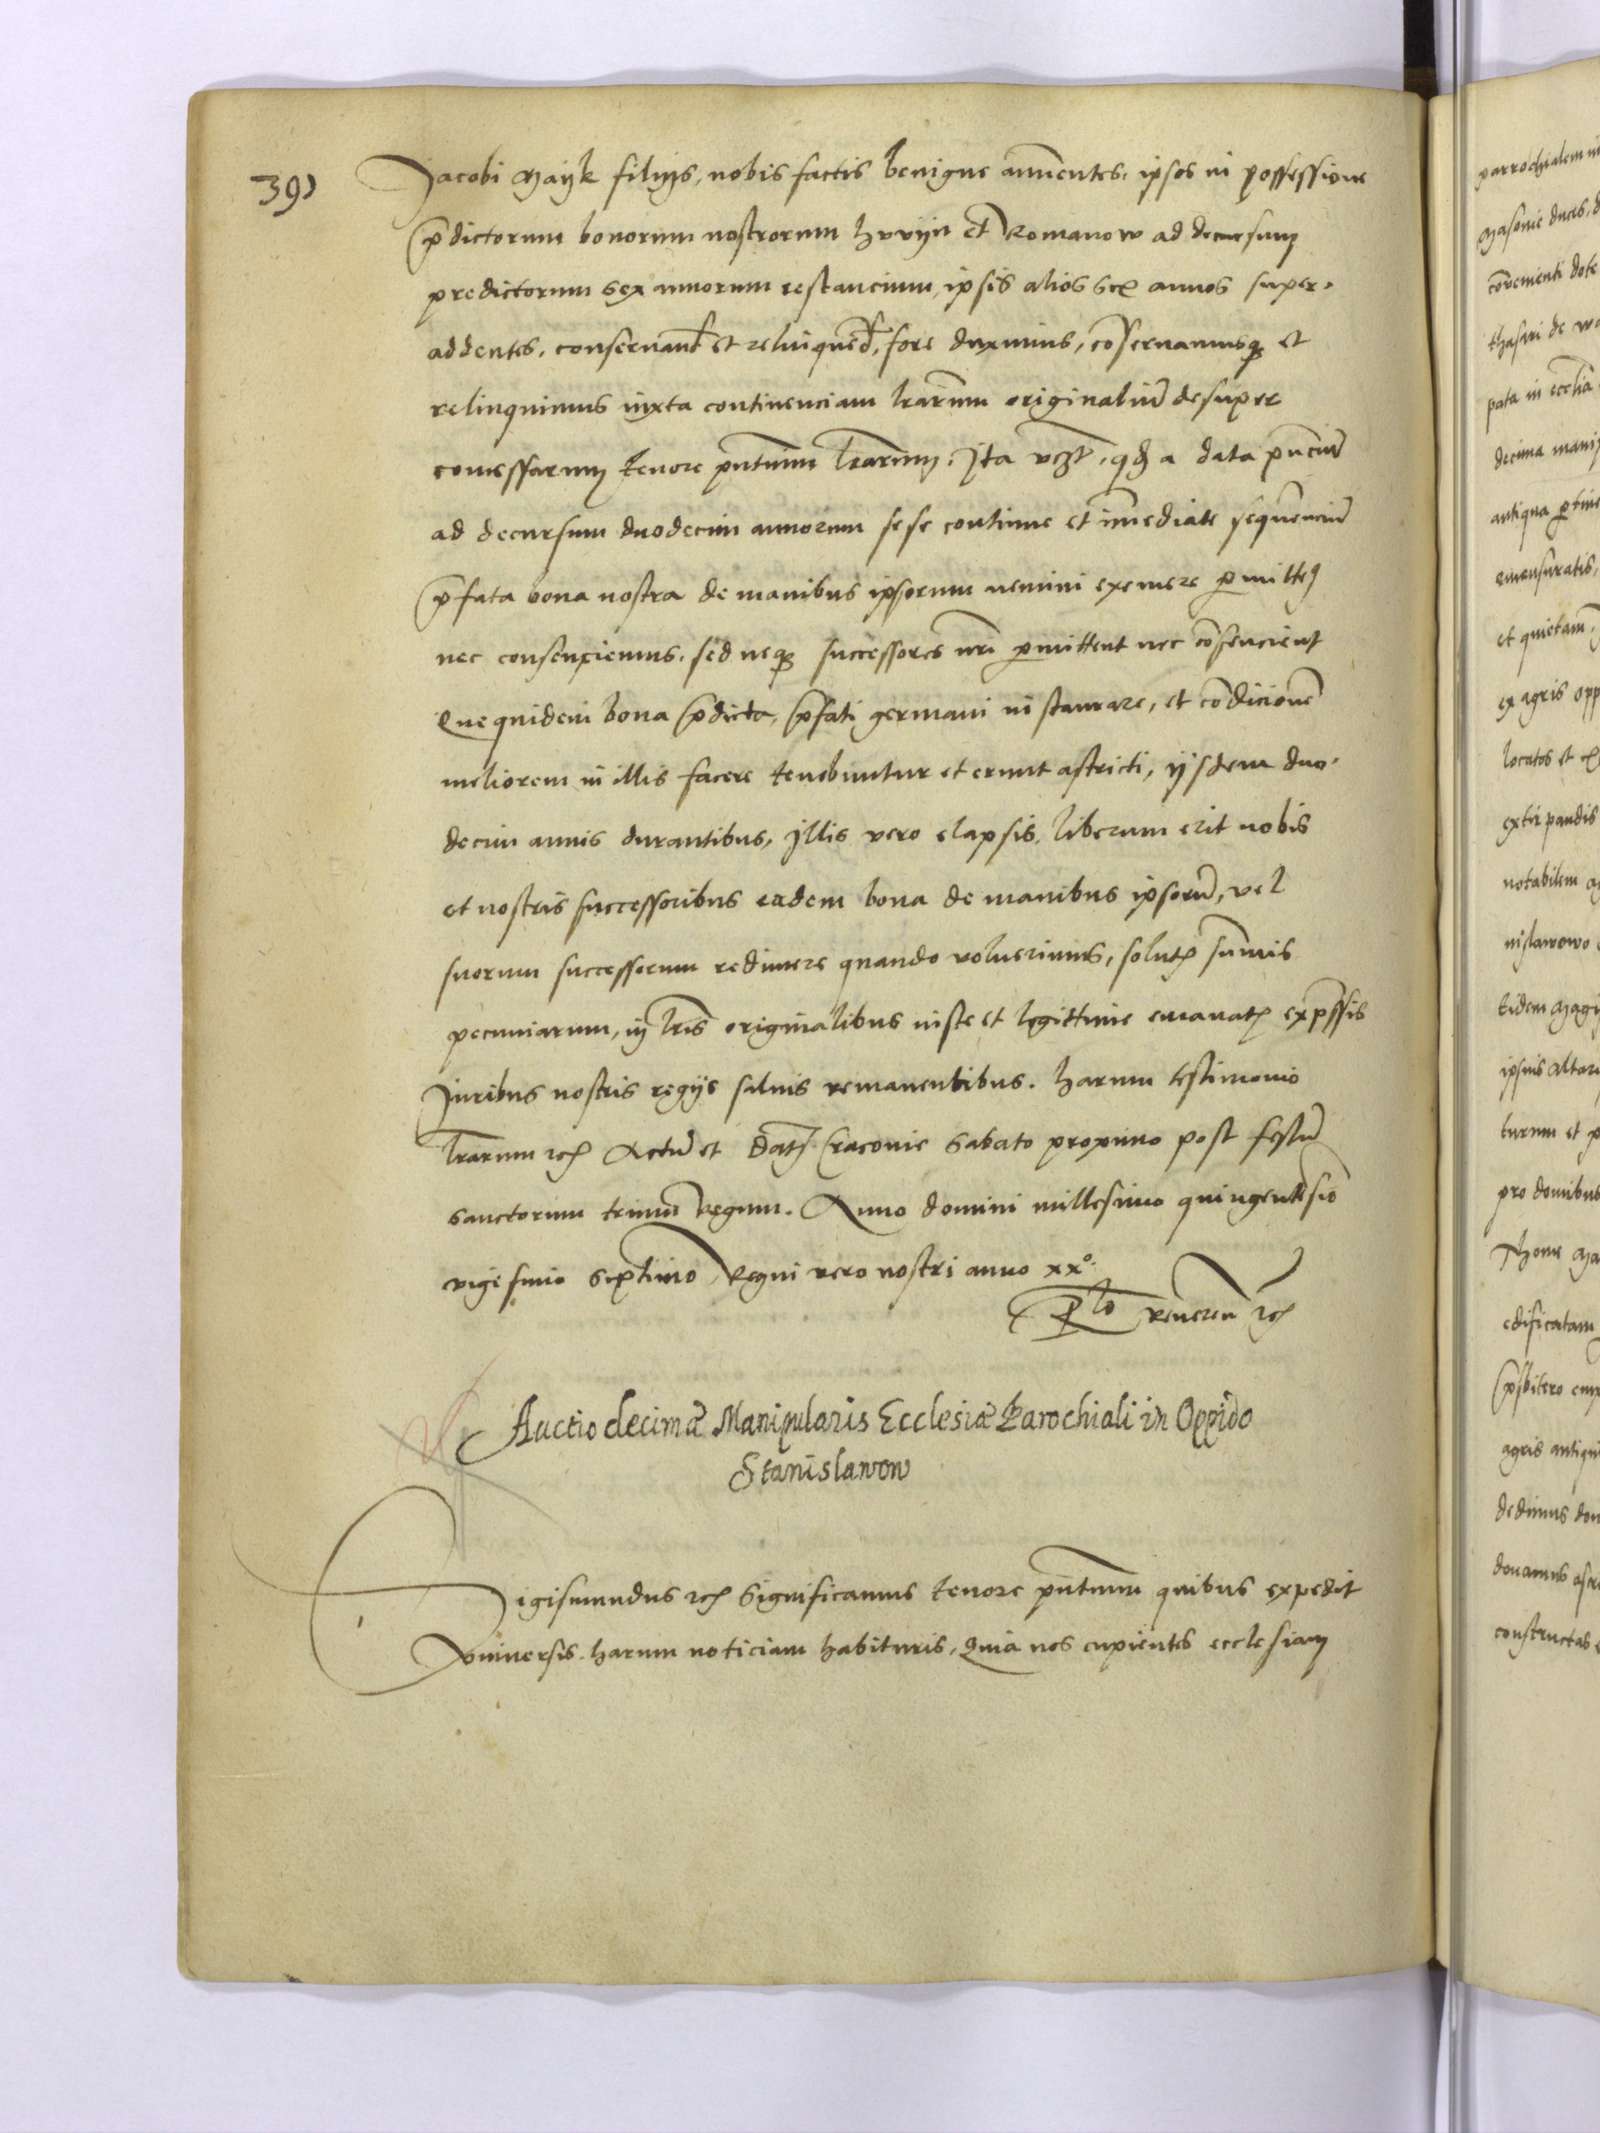 391
Jacobi Mayk filijs, nobis factis benigne annuentes, ipsos in possessione
p̄dictorum bonorum nostrorum hvvijn et Romanow ad decursum
predictorum sex annorum restancium, ipsis alios sex annos super-
addentes, conservand et relinquēd, fore duximus, cōservamusq et
relinquimus iuxta continenciam lrārum originaliū desuper
confessarum tenore pn̄tium lrārum, Ita vcȝt, qđ a data pn̄ciū
ad decursum duodecim annorum sese continue et im̄ediate sequenciū
p̄fata bona nostra de manibus ipsorum nemini exemere permitteꝰ
nec consenciemus, sed neq successores nr̄i permittent nec cōsencient
Que quidem bona p̄dicta, p̄fati germani instaurare, et cōdicionē
meliorem in illis facere tenebuntur et erunt astricti, ijsdem duo-
decim annis durantibus, Illis vero elapsis, liberum erit nobis
et nostris successoribus eadem bona de manibus ipsorū, vel
suorum successorum redimere quando voluerimus, solutꝭ sum̄is
pecuniarum, in lrīs originalibus iuste et legittime emanatꝭ exp̄ssis
Juribus nostris regijs salvis remanentibus. harum testimonio
lrārum ꝛcꝭ Actū et Datꝭ Cracovie Sabato proximo post festū
sanctorum trium Regum. Anno domini millesimo quingentesīo
vigesimo septimo Regni vero nostri anno xxº.
Rlo Reveren ꝛcꝭ
Auctio decimæ Manipularis Ecclesiæ Parochiali in Oppido
Stanislawow
Sigismundus ꝛcꝭ Significamus tenore pn̄tium quibus expedit
Vniversis harum noticiam habituris, Quia nos cupientes ecclesiam
parrochialem in
Masovie duces, d
cōvenienti dote
pata in eccliā
decima mani
antiqua ptine
emensuratis,
et quietam,
ex agris opp
locatos et
extirpandis
notabilem a
nislawowo
tidem Magi
ipsius altari
turum et p
pro domibus
Thome Ma
edificatam
p̄sbitero
agris antiqui
dedimus don
donamus
constructas